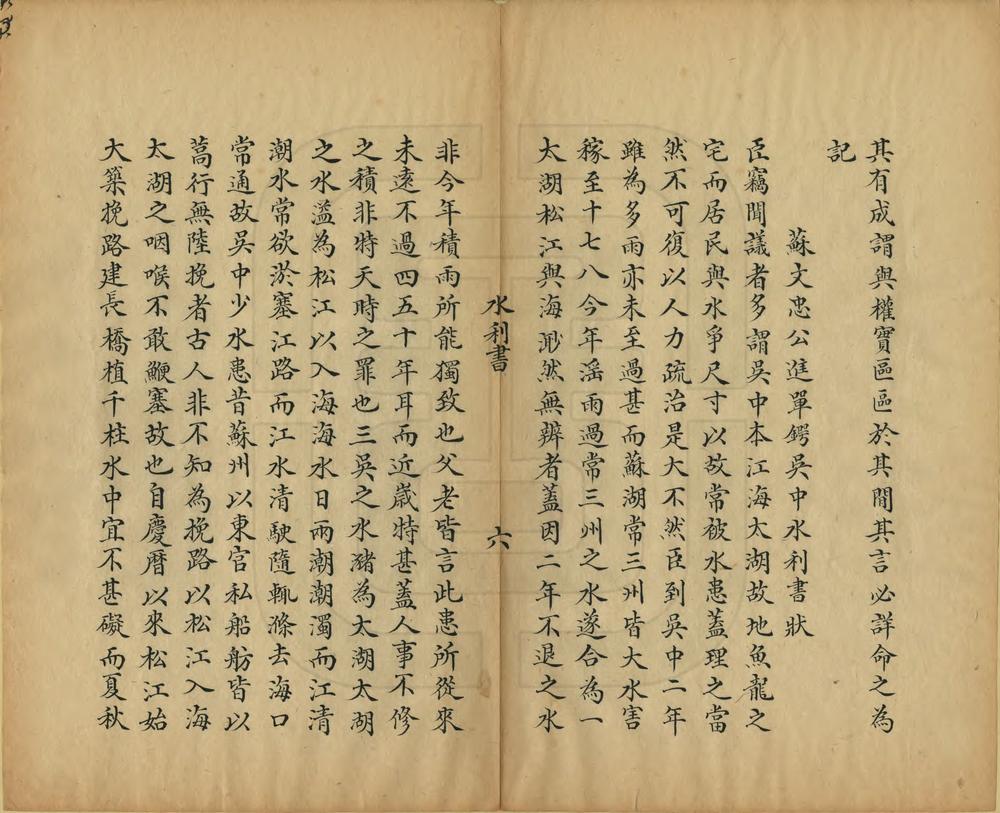 其有成謂與權實區區於其間其言必詳命之為
記
蘇文忠公進單鍔吳中水利書狀
臣竊聞議者多謂吳中本江海太湖故地魚龍之
宅而居民與水爭尺寸以故常被水患蓋理之當
然不可復以人力疏治是大不然臣到吳中二年
雖為多雨亦未至過甚而蘇湖常三州皆大水害
稼至十七八今年滛雨過常三州之水遂合為一
太湖松江與海渺然無辨者蓋因二年不退之水
水利書
六
非今年積雨所能獨致也父老皆言此患所從來
未遠不過四五十年耳而近歲特甚蓋人事不修
之積非特天時之罪也三吳之水豬為太湖太湖
之水溢為松江以入海海水日兩潮潮濁而江清
潮水常欲淤塞江路而江水清駛隨輒滌去海口
常通故吳中少水患昔蘇州以東官私船舫皆以
蒿行無陸挽者古人非不知為挽路以松江入海
太湖之咽喉不敢鯁塞故也自慶曆以來松江始
大築挽路建長橋植千柱水中宜不甚礙而夏秋